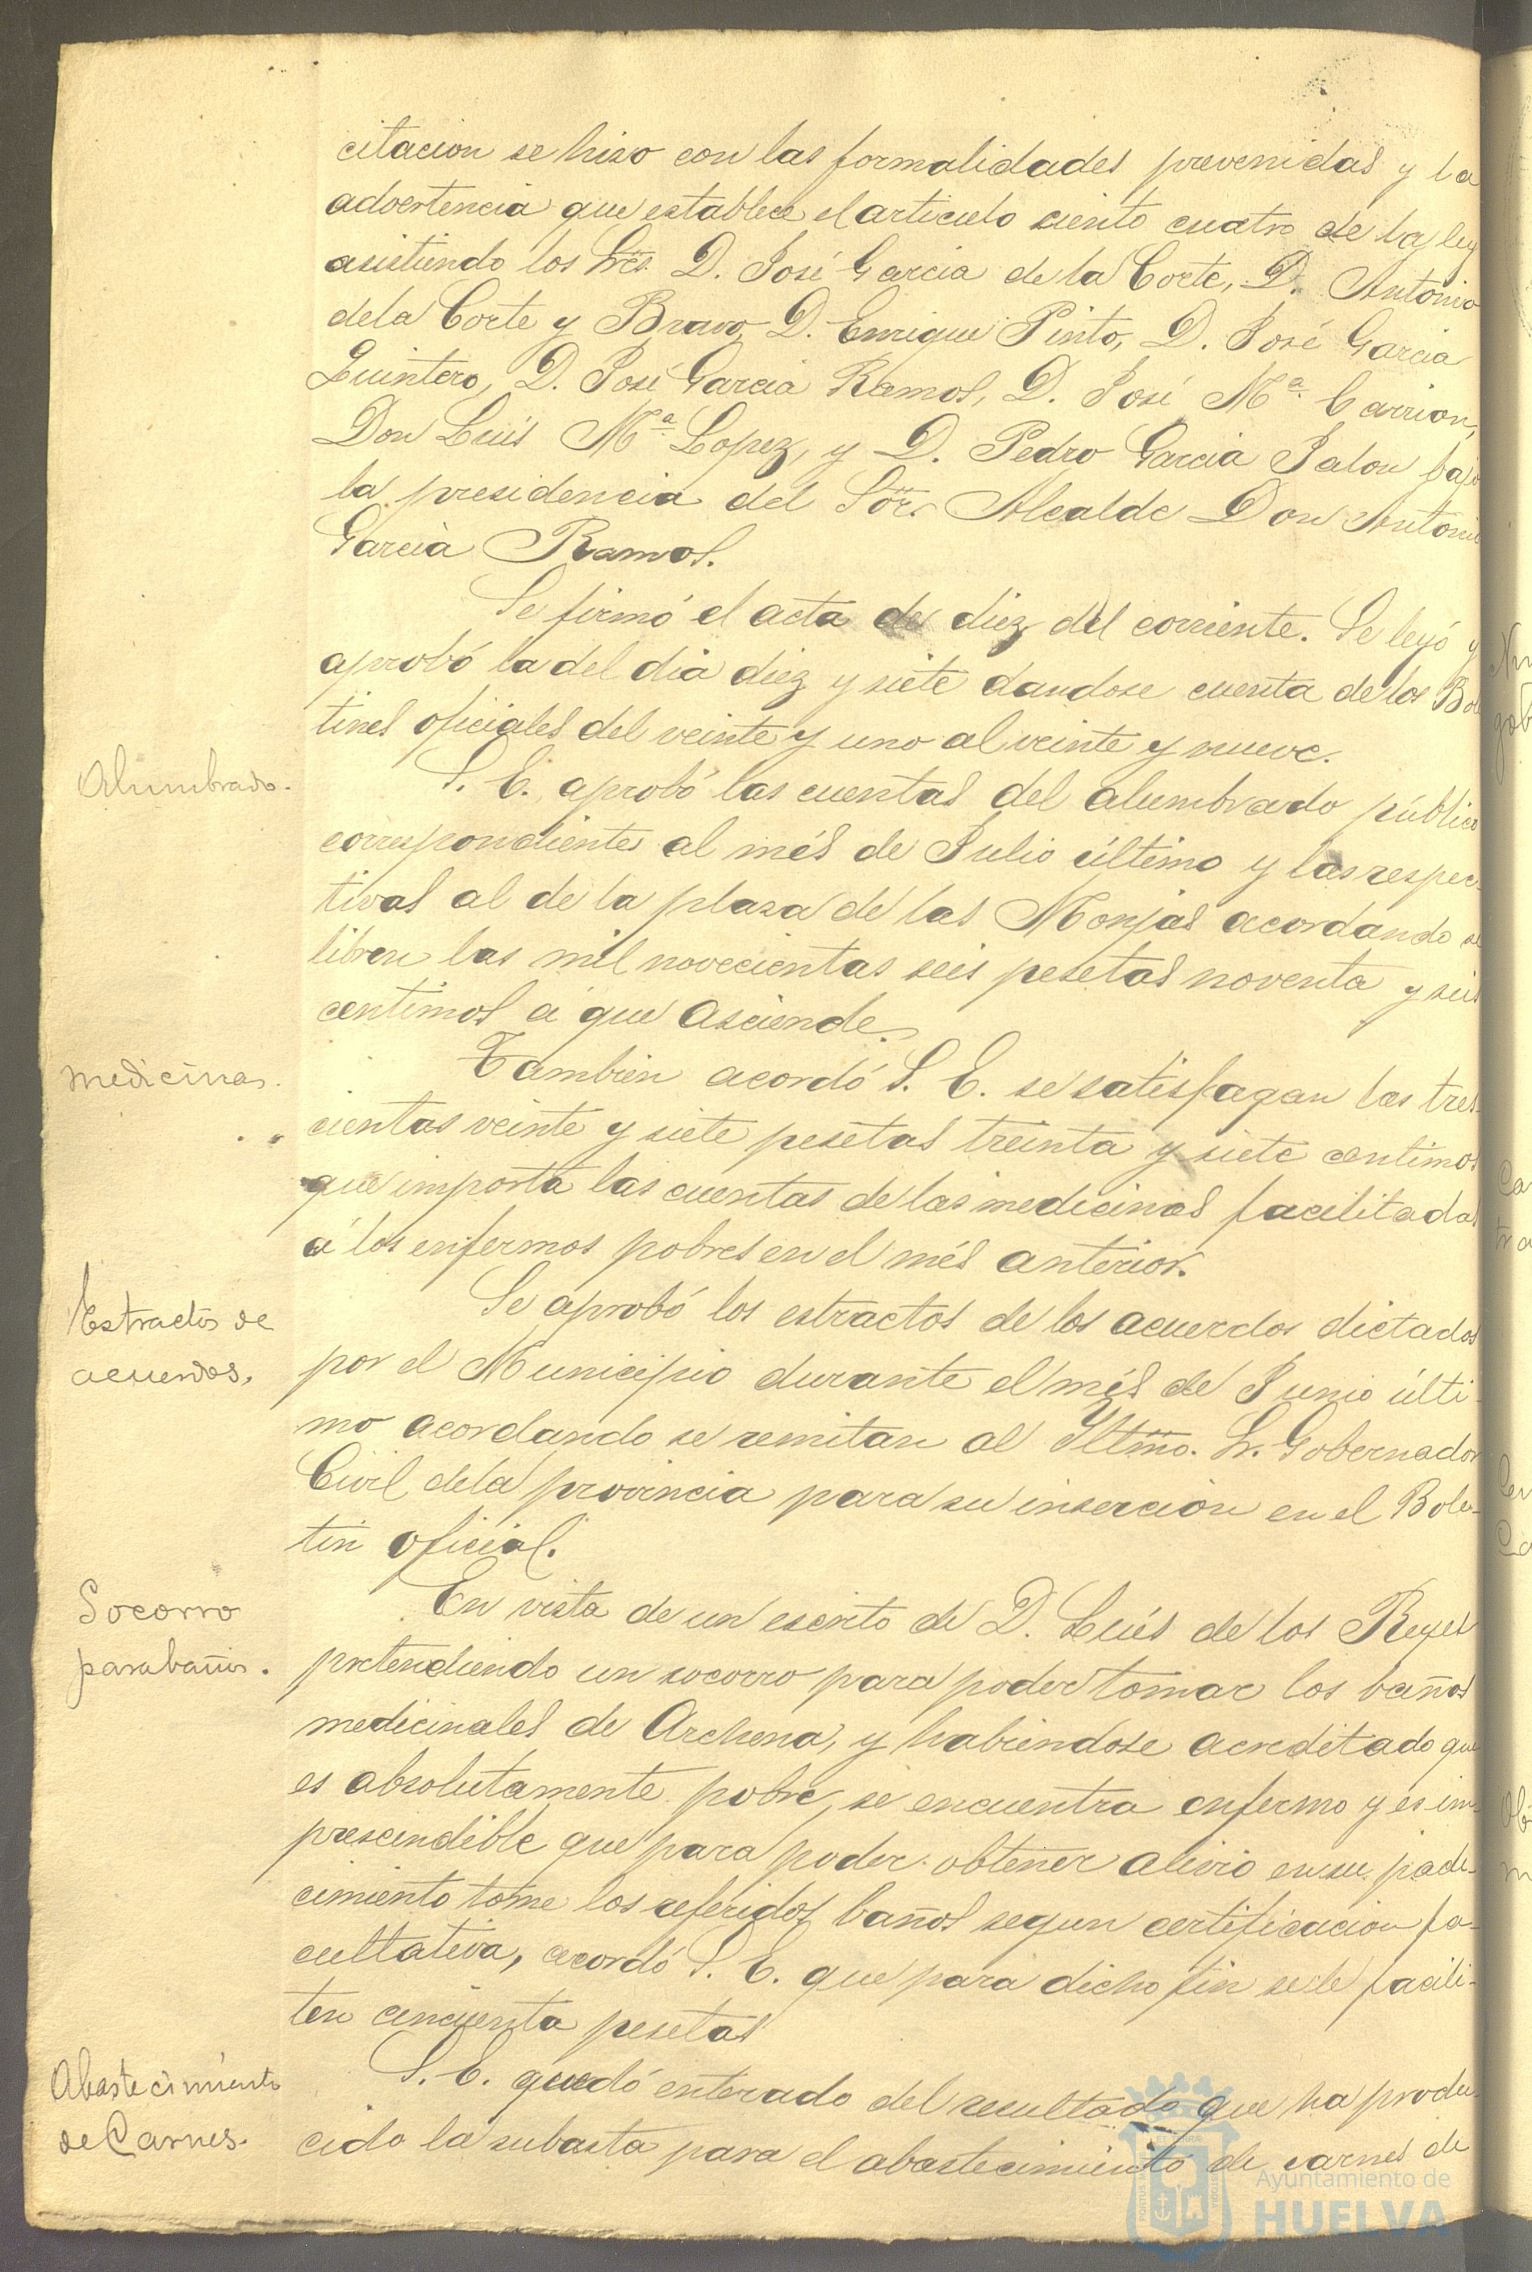 citacion se hiso con las formalidades prevenidas y la
advertencia que establece el articulo ciento cuatro de la ley
asistiendo los Sres. D. José Garcia de la Corte, D. Antonio
dela Corte y Bravo, D. Enrique Pinto, D. José Garcia
Quintero, D. José Garcia Ramos, D. José Mª. Carrion,
Don Luis Mª. Lopez, y D. Pedro Garcia Jalon bajo
la presidencia del Sor. Alcalde Don Antonio
Garcia Ramos.
Se firmó el acta de diez del corriente. Se leyó y
aprobó la del dia diez y siete dandose cuenta de los Bole
tines oficiales del veinte y uno al veinte y nueve.
Alumbrado.
S. E. aprobó las cuentas del alumbrado público
correspondiente al més de Julio último y las respec-
tivas al de la plasa de las Monjas acordando se
libren las mil novecientas seis pesetas noventa y seis
centimos a que asciende.
Medicinas.
Tambien acordó S. E. se satisfagan las tres-
cientas veinte y siete pesetas treinta y siete centimos
que importa las cuentas de las medicinas facilitadas
á los enfermos pobres en el més anterior.
Estractos de
acuerdos.
Se aprobó los estractos de los acuerdos dictados
por el Municipio durante el més de Junio últi-
mo acordando se remitan al Iltmo. Sr. Gobernador
Civil dela provincia para su inserción en el Bole-
tin oficial.
Socorro
para baños.
En vista de un escrito de D. Luís de los Reyes
pretendiendo un socorro para poder tomar los baños
medicinales de Archena, y habiendose acreditado que
es absolutamente pobre, se encuentra enfermo y es im-
prescindible que para poder obtener alivio en su pade-
cimiento tome los referidos baños segun certificacion fa-
cultativa, acordó S. E. que para dicho fin se le facili-
ten cincuenta pesetas
Abastecimiento
de Carnes.
S. E. quedó enterado del resultado que ha produ-
cido la subasta para el abastecimiento de carnes de
Ayuntamiento de
HUELVA